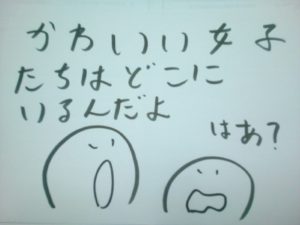 かわいい女子
たちはどこに
いるんだよ
はあ?